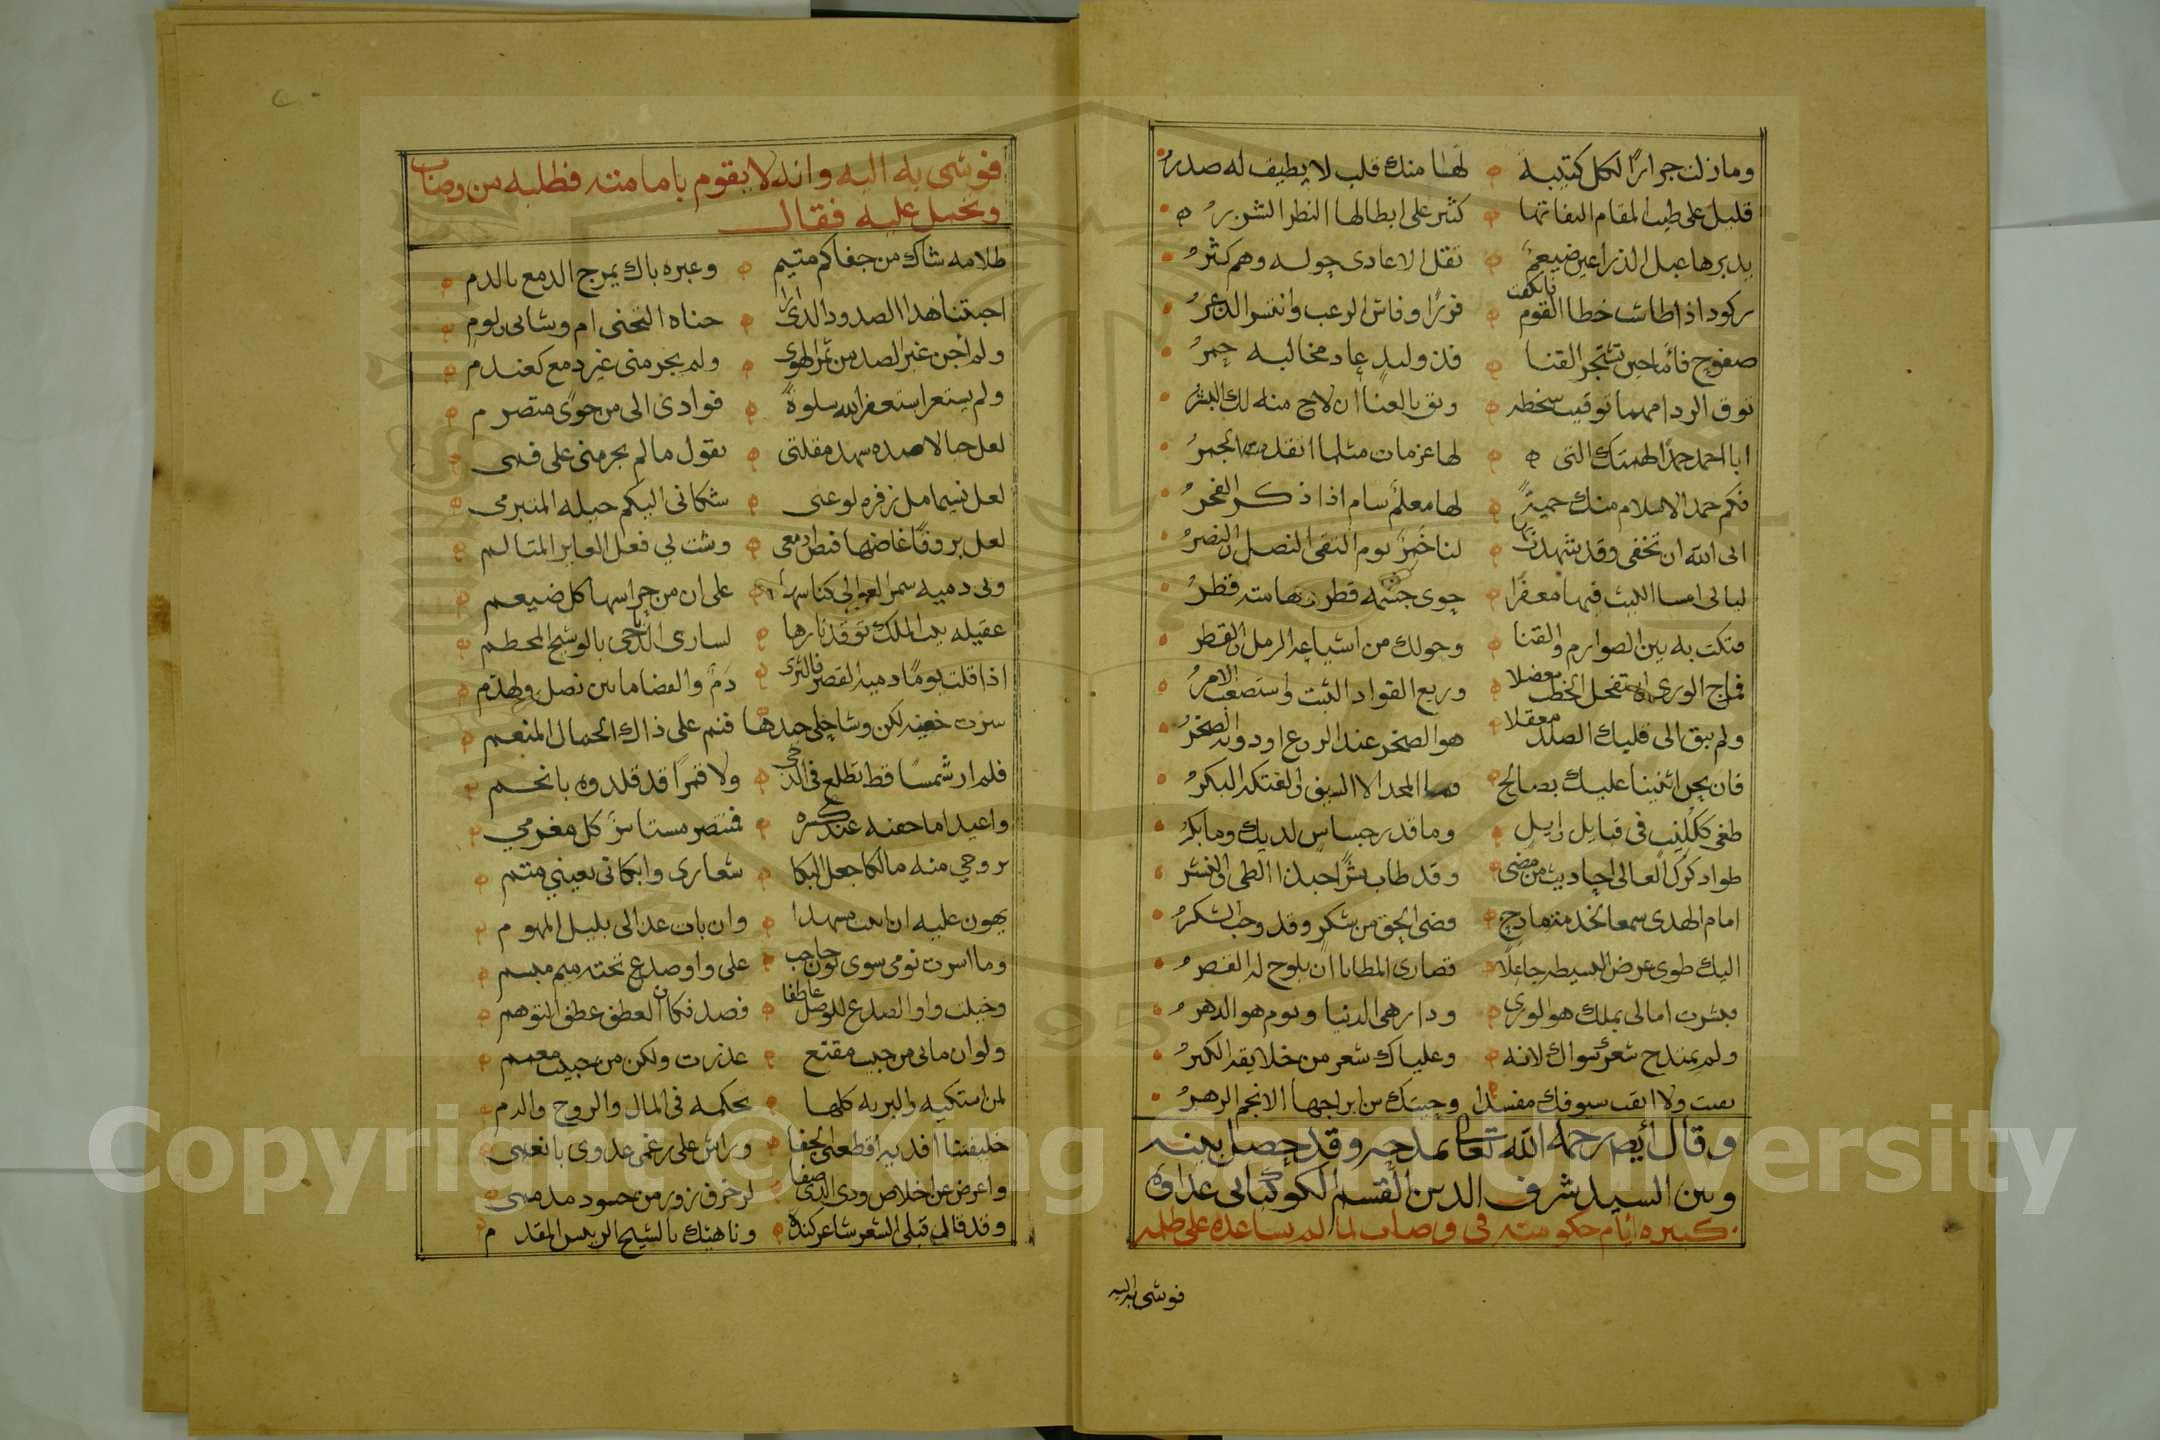 وما زلت جرارًا لكل كتيبة لها منك قلب لا يطيف له صدر
قليل على طيب المقام التفاتها كثير على ابطالها النظر الشزر
يديرها عبل الذراعين ضيغم تقل الاعادى حوله وهم كثر
ركود اذا طاشت خطا القوم فرًا وفاش الرعب وانتشر الذعر
صفوح فأما حين تشتجر القنا فذو لبد عاد مخالبه حمر
توق الردا مهما توقيت سخطه وثق بالعنا ان لاح منه لك البشر
ابا احمد حمدًا لهمتك التى لها عزمات مثلها اتقد الجمر
فكم حمد الاسلام منك حميةً لها معلم سام اذا ذكر الفخر
ابى الله ان تخفى وقد شهدت بها لنا خمر يوم التقى النصل والنصر
ليالى امسا الليث فيها معفرا حوى جثته قطر وهامته قطر
فتكت به بين الصوارم والقنا وحولك من اشياعه الرمل والقطر
فماج الورى واستفحل الخطب معضلا وريع الفواد الثبت واستصعب الامر
ولم يبق الى قلبك الصلد معقلا هو الصخر عند الروع او دونه الصخر
فان يحن اثنينا عليك بصالح فما المجد الا السيف والفتكة البكر
طغى ككليب فى قبايل وايل وما قدر جساس لديك وما بكر
طوا ذكرك العالى احاديث من مضى وقد طاب نشرًا حبذا الطى والنشر
امام الهدى سمعا لخذ منتها مادح قضى الحق من شكر وقد وجب الشكر
اليك طوى عرض البسيطة جاعلا قصارى المطايا ان يلوح له القصر
فبشرت امالى بملك هو الورى ودار هى الدنيا ويوم هو الدهر
ولم يمتدح شعرى سواك لانه وعلياك شعر من خلايقه الكبر
بقيت ولا ابقت سيوفك مفسدا وحيتك من ابراجها الانجم الزهر
وقال أيضا رحمه الله تعالى يمدحه وقد حصل بينه
وبين السيد شرف الدين القسم الكوكبانى عداوه
كبيره ايام حكومته فى وصاب لما لم يساعده على ظلمه
فوشى به اليه
فوشى به اليه وانه لا يقوم بامامته فطلبه من وصاب
وتحيل عليه فقال
ظلامه شاك من جفاكم متيم وعبره باك يمزج الدمع بالدم
احبتنا هذا الصدود الذى ارى جناه التجنى ام وشانى ولوم
ولم أجن غير الصد من ثمر الهوى ولم يجر منى غير دمع كعندم
ولم يستعر استغفر الله سلوة فوادى الى من جوًى متصرم
لعل خيالا صده سهد مقلتى يقول ما لم يجر منى على فمى
لعل نسيما مل زفره لوعتى شكانى اليكم حيله المتبرمى
لعل بروقًا غاضها فيض ادمعى وشت بي فعل العابر المتالم
وبى دميه سمر العوالى كناسها على ان من حراسها كل ضيغم
عقيله بيت الملك توقد نارها لسارى الدجى بالوشيج المحطم
اذا قلت يومًا دمية القصر فالثرى دم والفضا ما بين نصل ولهذم
سرت خفيه لكن وشا حلى جيدها فنم على ذاك الجمال المنعم
فلم ار شمسًا قط تطلع فى الدجى ولا قمرًا قد قلدوه بانجم
واعيد اما جفنه عند كسره فمنتصر مستاسر كل مغرمي
بروحي منه مالكا جعل البكا شعارى وابكانى بعيني متمم
يهون عليه ان ابيت مسهدا وان بات عذالى بليل المهوم
وما اسرت نومى سوى نون حاجب على واو صدغ تحته ميم مبسم
وخيلت واو الصدغ للوصل عاطفا فصد فكان العطف عطف التوهم
ولو ان مابى من حبيب مقنع عذرت ولكن من حبيب معمم
لمن اشتكيه والبريه كلها تحكمه فى المال والروح والدم
خليفتنا افديه اقطعنى الجفا وراش على رغمى عدوى بانعمى
واعرض عن اخلاص ودى الذى صفا لزخرف زور من حسود مذممى
وقد قال قبلى الشعر شاعر كنده وناهيك بالشيخ الريس المقدم